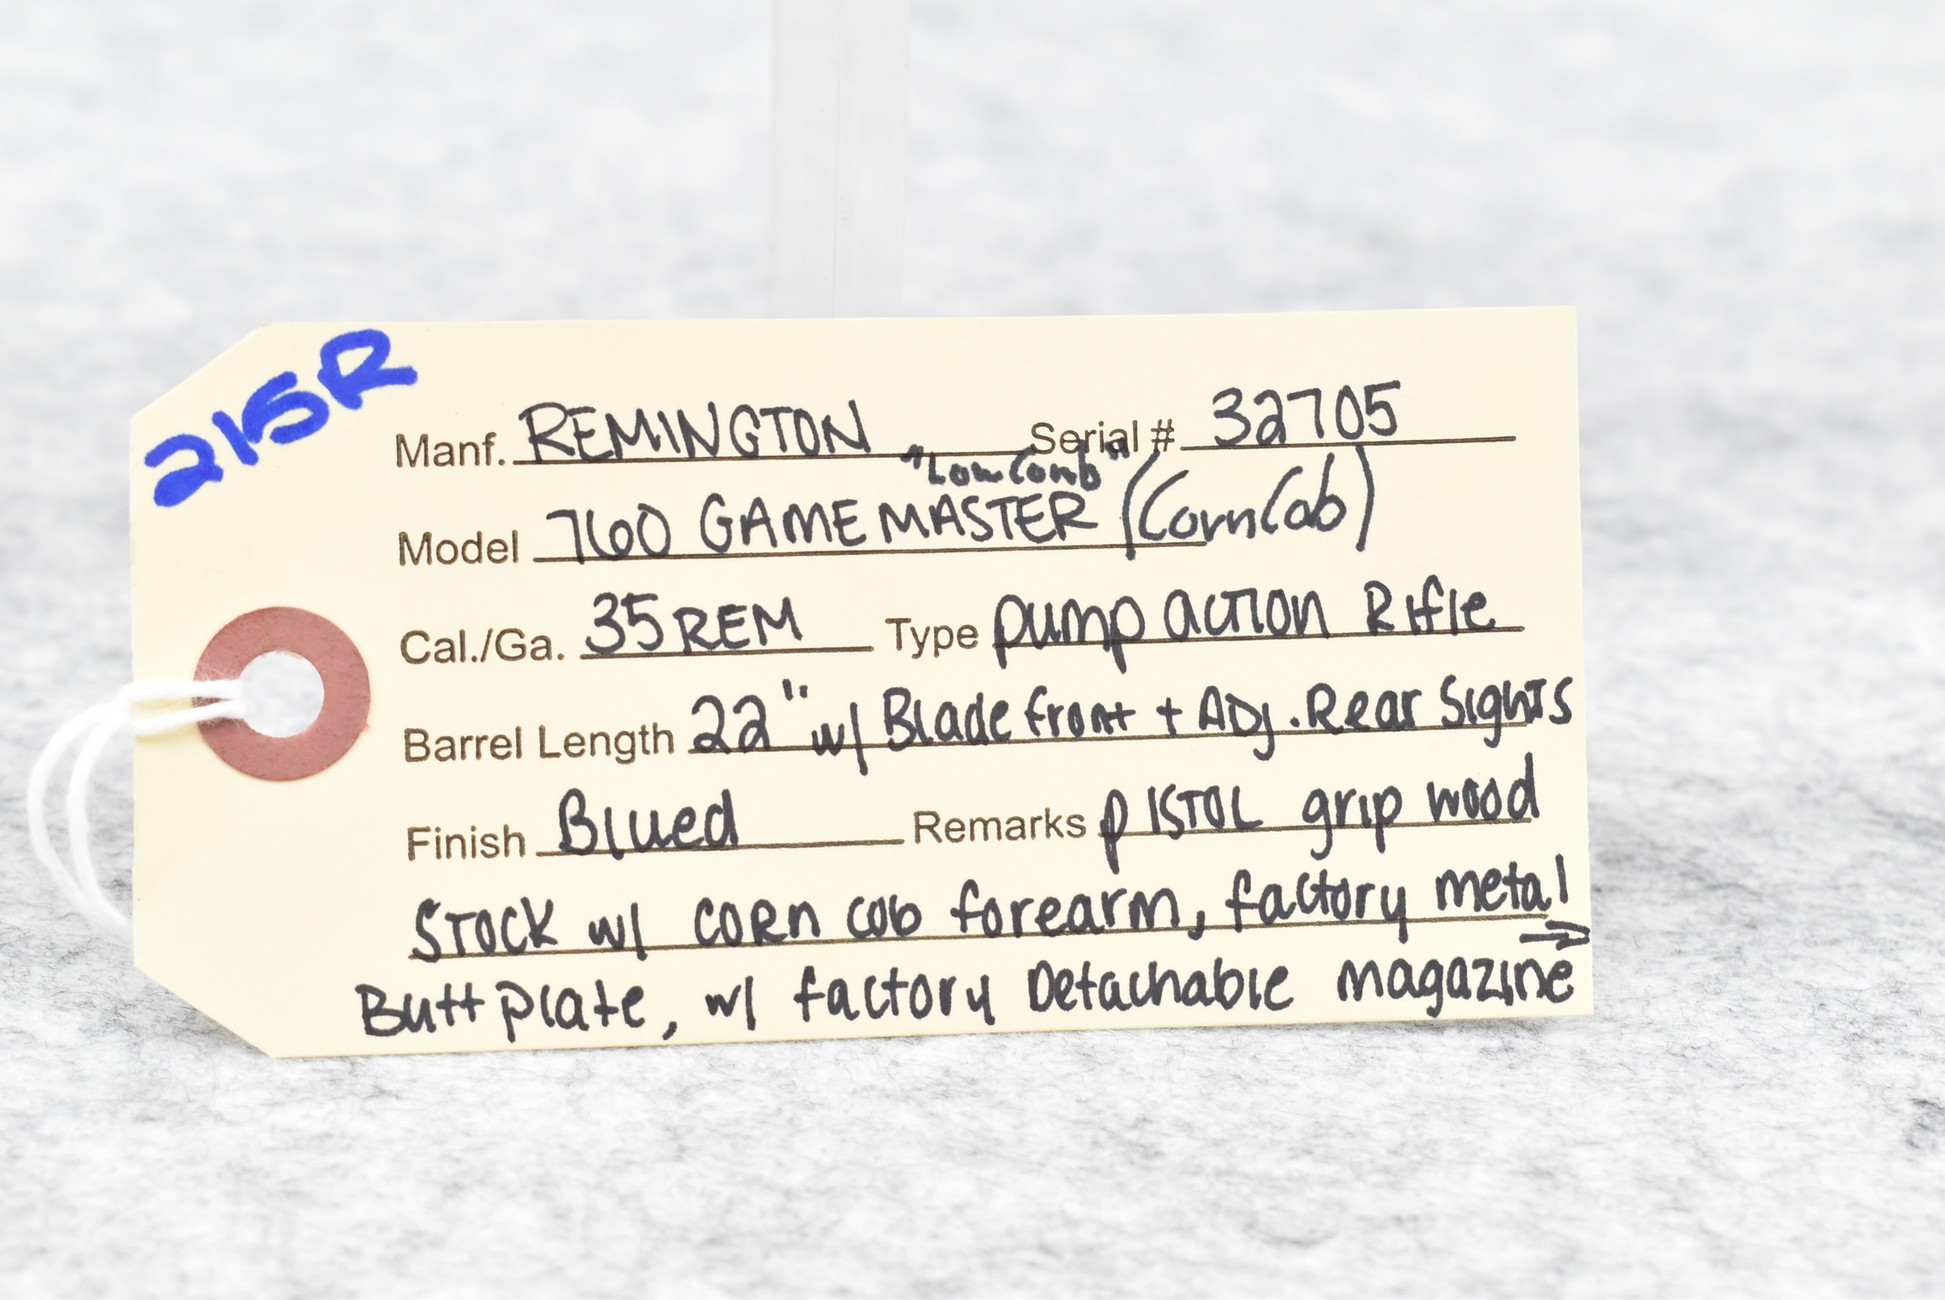 215R
Manf. REMINGTON Serial # 32705
"Low Comb"
Model 760 GAMEMASTER (CornCob)
Cal./Ga. 35 REM Type pump action Rifle
Barrel Length 22" w/ Blade front + ADJ. Rear Sights
Finish Blued Remarks pISTOL grip wood
STOCK w/ CORN COB forearm, factory metal
Butt plate, w/ factory Detachable magazine →